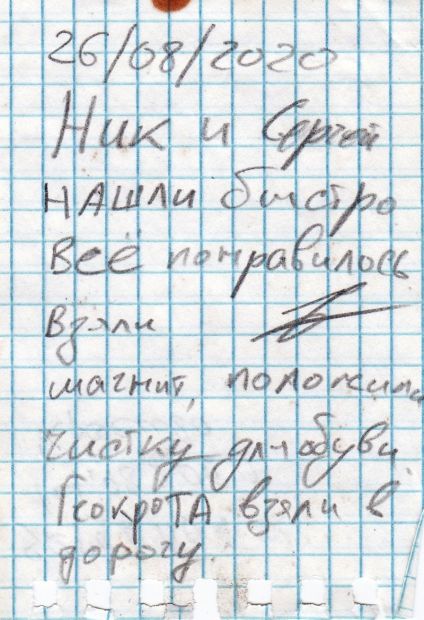 26/08/2020
Ник и Сергей
нашли быстро
Всё понравилось
Взяли
магнит, положили
чистку для обуви.
взяли в
дорогу.